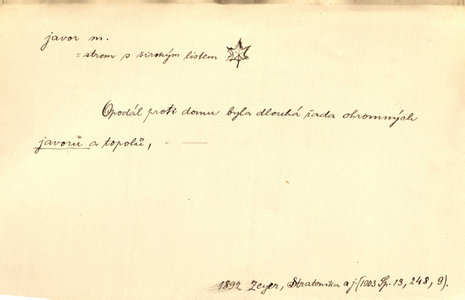 javor m.
= strom s širokým listem
Opodál proti domu byla dlouhá řada ohromných
javorů a topolů, —
1892 Zeyer, Stratonika a j. (1903 Sp. 13, 248, 9).